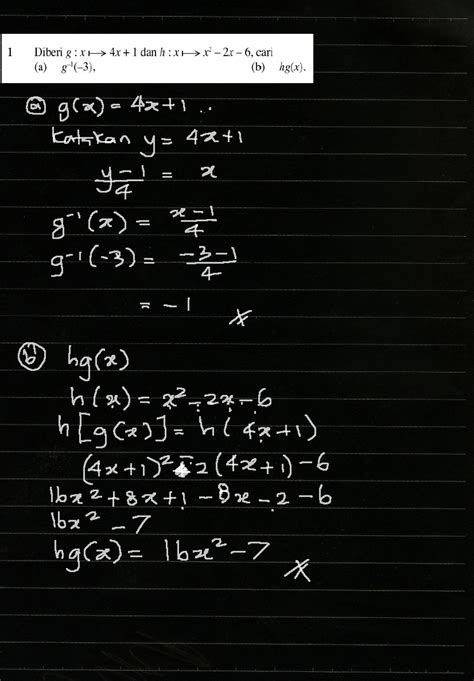 1 Diberi g : x ⟼ 4x + 1 dan h : x ⟼ x² – 2x – 6, cari
(a) g⁻¹(–3), (b) hg(x).
(a) g(x) = 4x+1 ..
Katakan y = 4x+1
(y-1)/4 = x
g⁻¹(x) = (x-1)/4
g⁻¹(-3) = (-3-1)/4
= -1
(b) hg(x)
h(x) = x² - 2x - 6
h[g(x)] = h(4x+1)
(4x+1)² - 2(4x+1) - 6
16x² + 8x + 1 - 8x - 2 - 6
16x² - 7
hg(x) = 16x² - 7